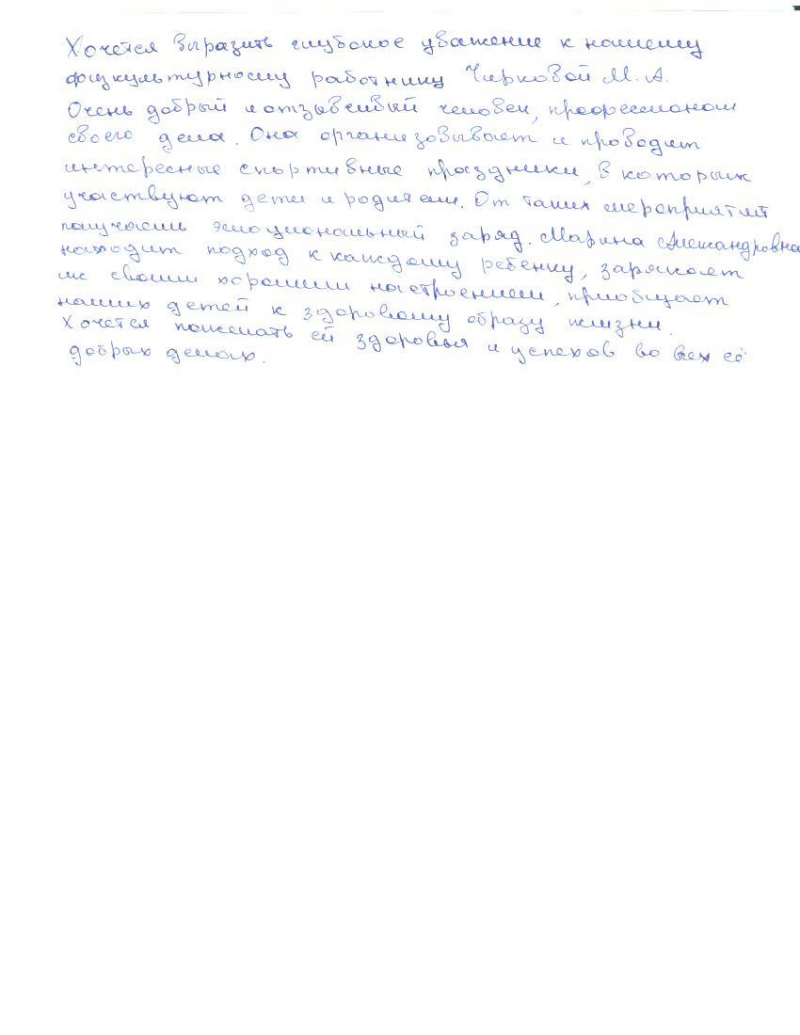 Хочется выразить глубокое уважение к нашему
физкультурному работнику Чирковой М. А.
Очень добрый и отзывчивый человек, профессионал
своего дела. Она организовывает и проводит
интересные спортивные праздники, в которых
участвуют дети и родители. От таких мероприятий
получаем эмоциональный заряд. Марина Александровна
находит подход к каждому ребенку, заряжает
их своим хорошим настроением, приобщает
наших детей к здоровому образу жизни.
Хочется пожелать ей здоровья и успехов во всех её
добрых делах.